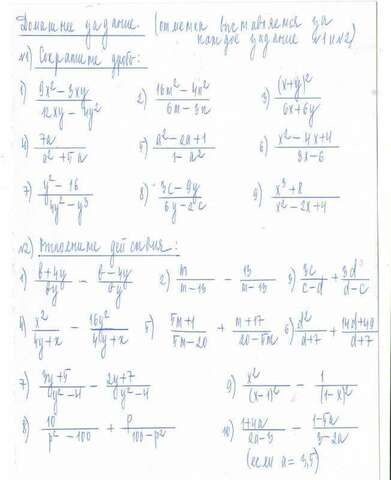 Домашнее задание. (отметки выставляются за
каждое задание №1 и №2)
№1) Сократите дробь:
1) (9x² − 3xy)/(12xy − 4y²) 2) (16m² − 4n²)/(6m − 3n) 3) (x+y)²/(6x+6y)
4) 7a/(a² + 5a) 5) (a² − 2a + 1)/(1 − a²) 6) (x² − 4x + 4)/(3x − 6)
7) (y² − 16)/(4y² − y³) 8) (3c − 9y)/(6y − 2c) 9) (x³ + 8)/(x² − 2x + 4)
№2) Выполните действия:
1) (b+4y)/(by) − (b−4y)/(by) 2) m/(m−13) − 13/(m−13) 3) 3c/(c−d) + 3d/(d−c)
4) x²/(4y+x) − 16y²/(4y+x) 5) (5m+1)/(5m−20) + (m+17)/(20−5m) 6) d²/(d+7) + (14d+49)/(d+7)
7) (3y+5)/(y²−4) − (2y+7)/(y²−4) 9) x²/(x−1)² − 1/(1−x)²
8) 10/(p²−100) + p/(100−p²) 10) (1+4a)/(2a−3) − (1−5a)/(3−2a)
(если a = 3,5)